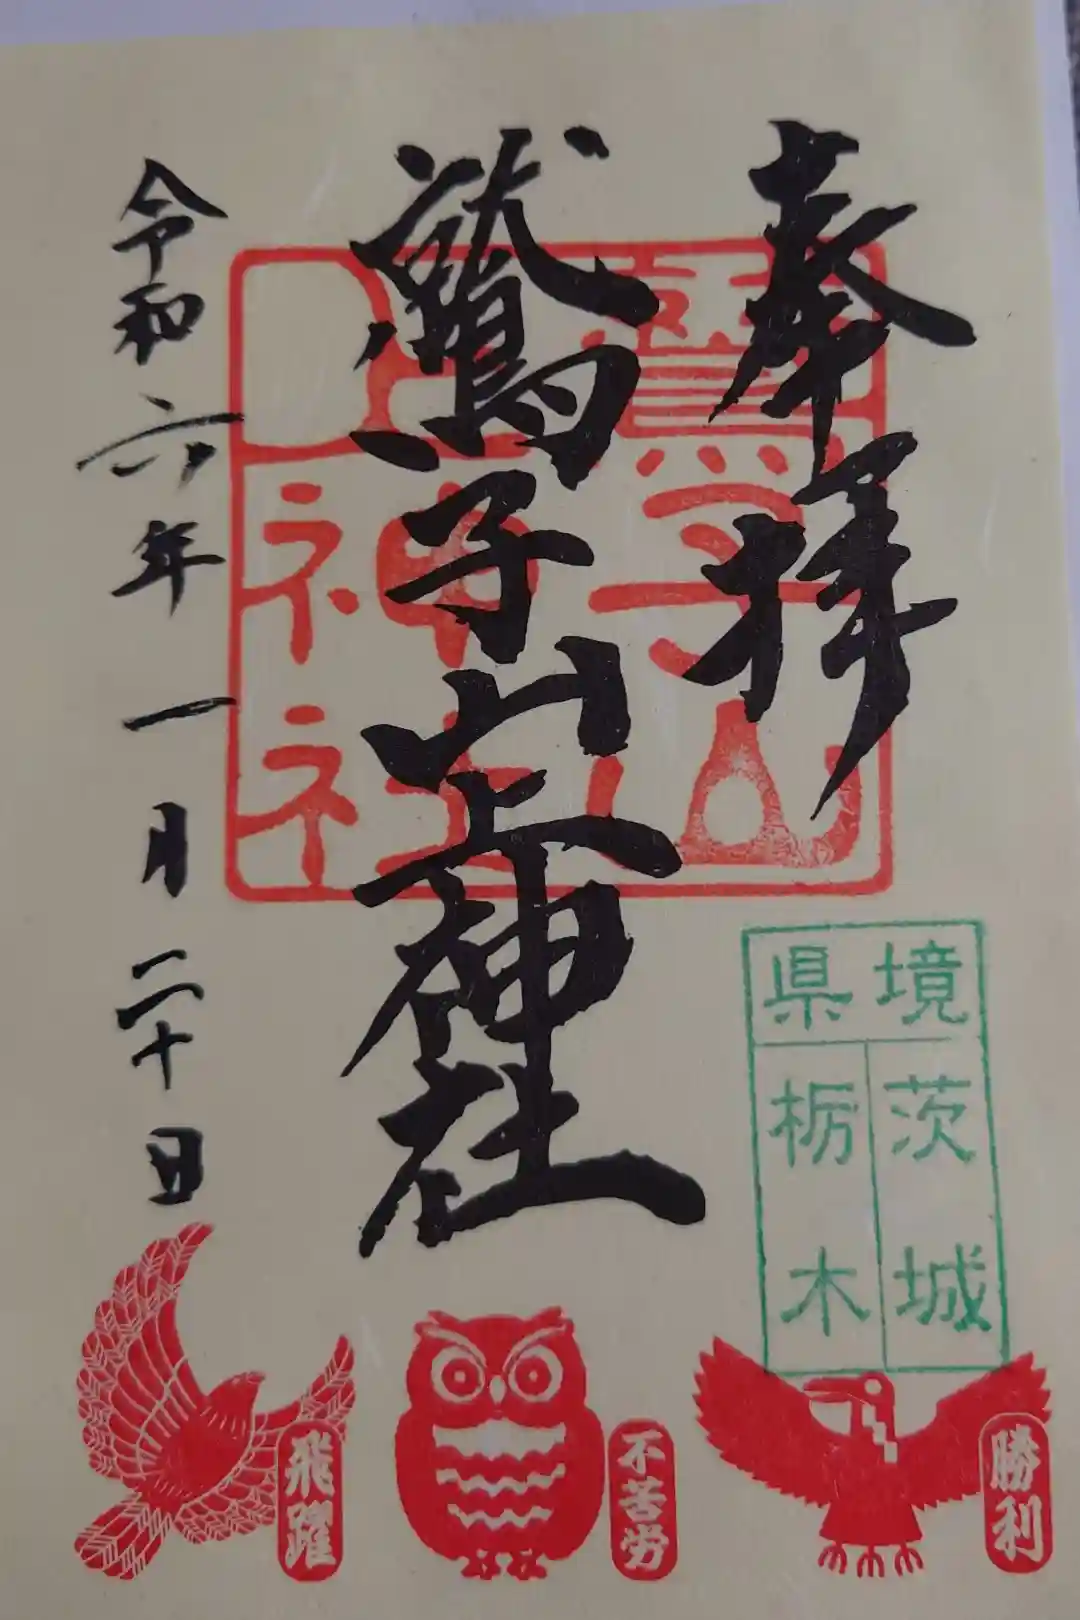 奉拝
鷲子山上神社
令和六年一月二十日
鷲子山
上神社
県境
茨城
栃木
勝利
不苦労
飛躍